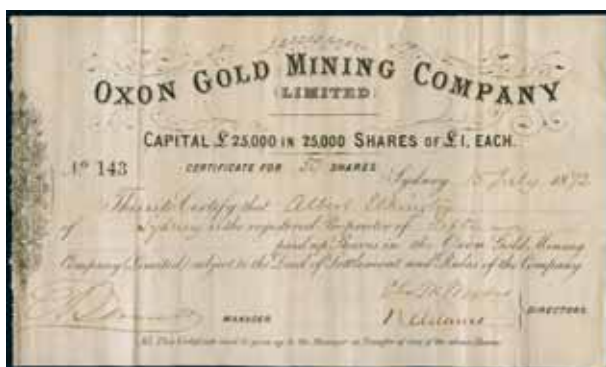 OXON GOLD MINING COMPANY
(LIMITED)
CAPITAL £25,000 IN 25,000 SHARES OF £1, EACH.
No 143
CERTIFICATE FOR 50 SHARES
Sydney 15 July 1872
This is to Certify that Albert
of Sydney is the registered Proprietor of Fifty
paid up Shares in the Oxon Gold Mining
Company (Limited) subject to the Deed of Settlement and Rules of the Company
MANAGER
DIRECTORS.
This Certificate must be given up to the Manager on Transfer of any of the above Shares